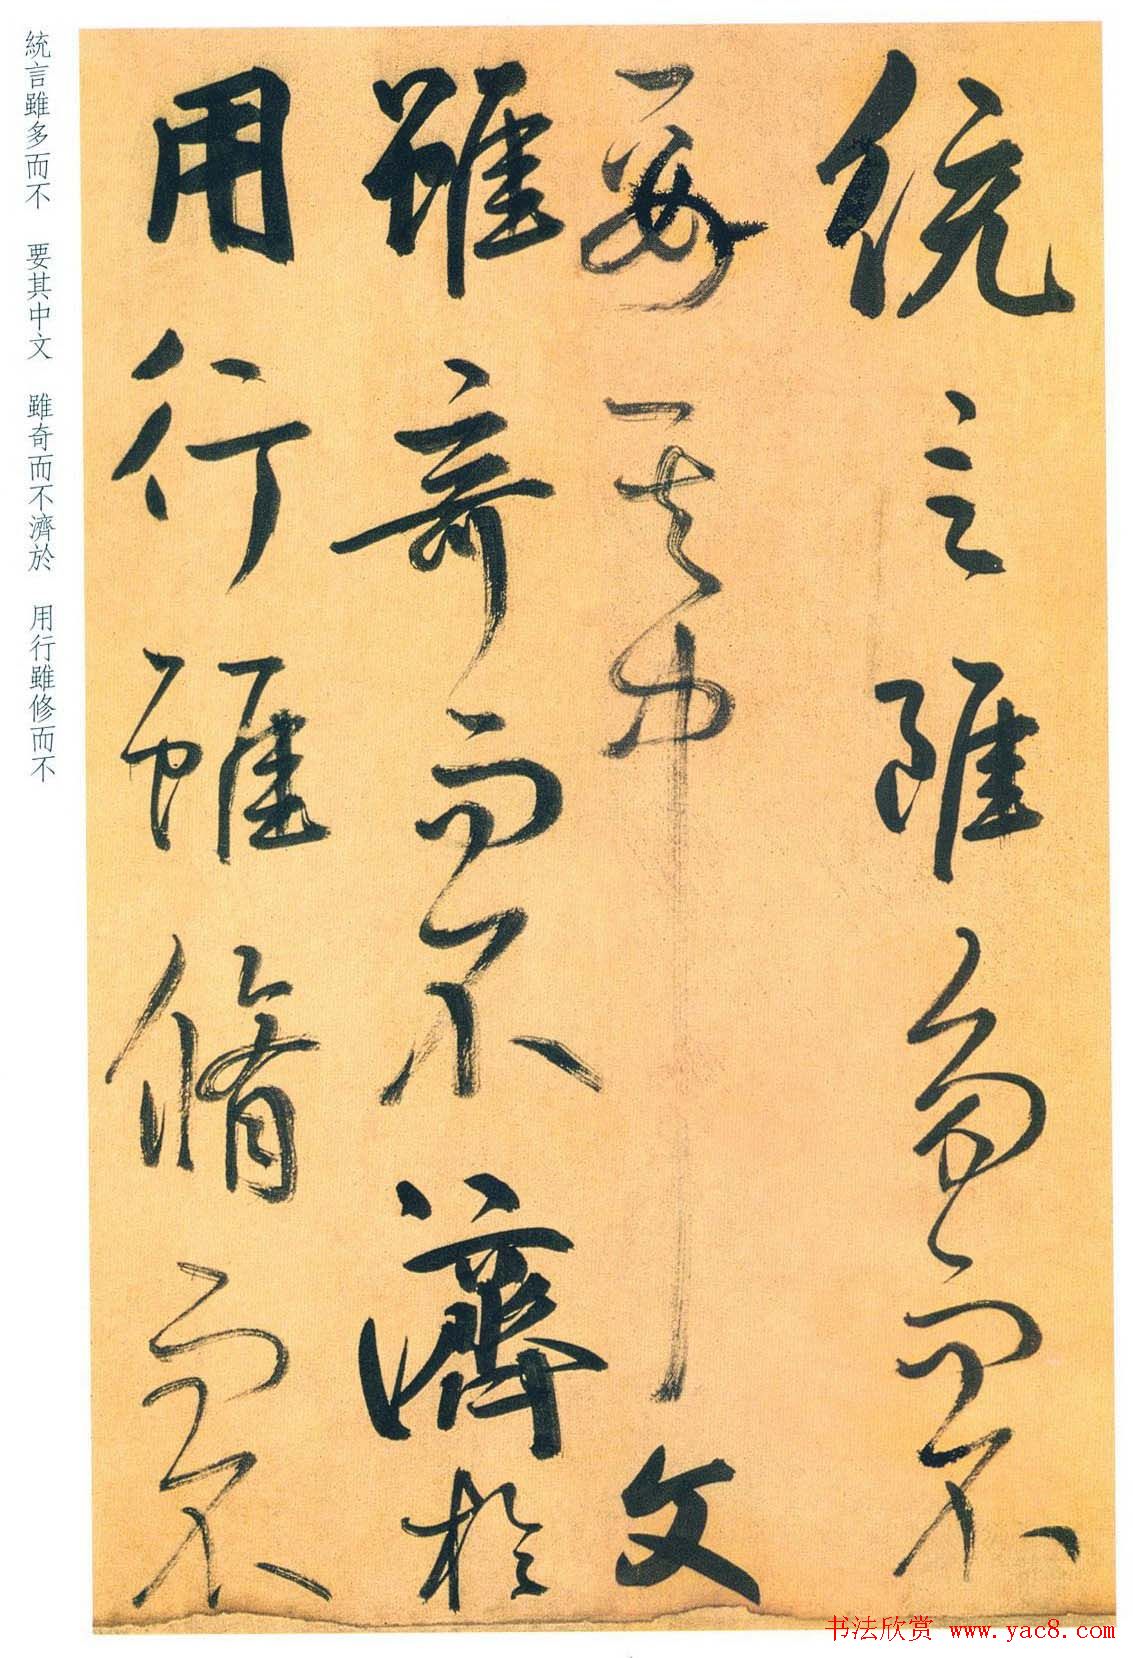 統言雖多而不
要其中文
雖奇而不濟於
用行雖脩而不
統言雖多而不 要其中文 雖奇而不濟於 用行雖修而不
书法欣赏 www.yac8.com